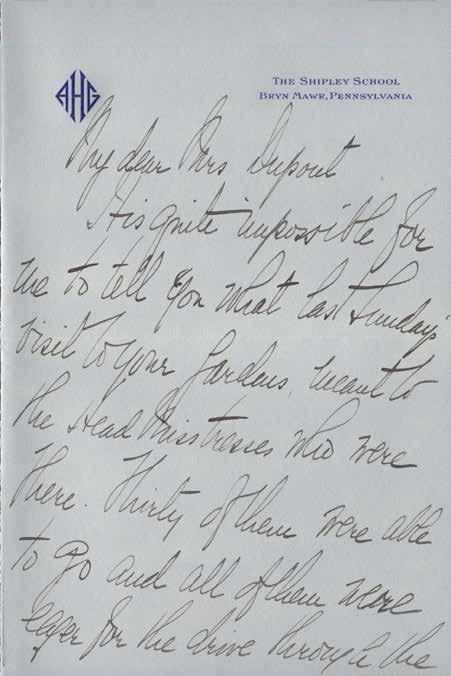 AHG
THE SHIPLEY SCHOOL
BRYN MAWR, PENNSYLVANIA
My dear Mrs Dupont
It is quite impossible for
me to tell you what last Sunday's
visit to your Gardens, meant to
the Head Misstresses who were
there. Thirty of them were able
to go and all of them were
eager for the drive through the